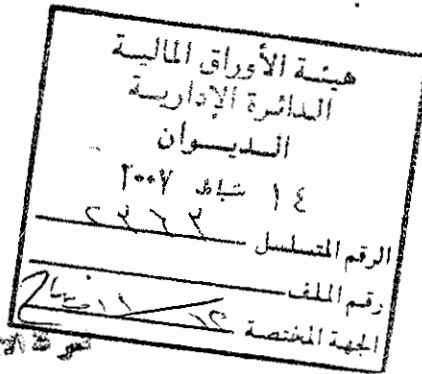 هيئة الأوراق المالية
الدائرة الإدارية
الديوان
١٤ شباط ٢٠٠٧
الرقم المتسلسل
رقم الملف
الجهة المختصة